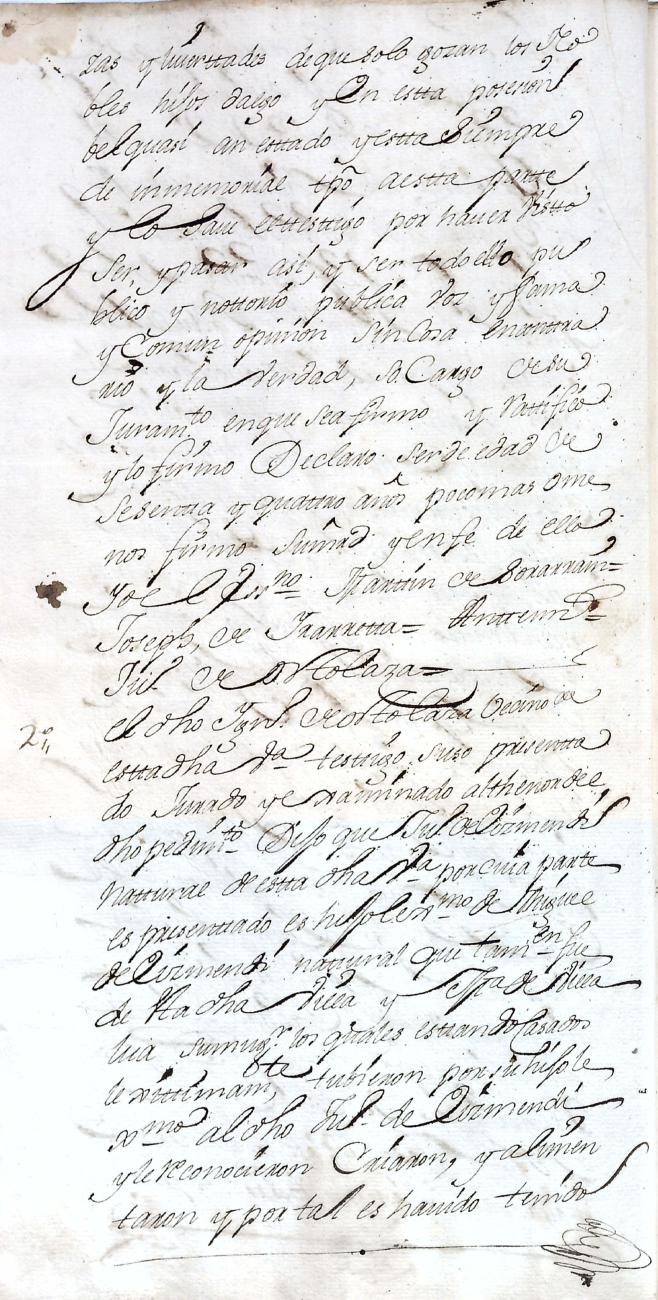 zas y livertades de que solo gozan los No
bles hijos dalgo y en estta posesion
bel quasi an esttado y estta siempre
de inmemorial tpō a estta parte
y lo save el testigo por haver visto
ser, y pasar asi, y ser todo ello pu
blico y nottorio publica voz y fama
y Comun opinion sin Cosa en contra
rio y la verdad, so Cargo de su
Juramto en que se afirmo y Rattifico
y lo firmo Declaro ser de edad de
sesenta y quattro años poco mas o me
nos firmo su mrd y en fe de ello
yo el Martin de
Joseph, de Ybarretta = Antte mi =
de Ortolaza =
2o,, el dho Ygno de Ortolaza Vecino de
estta dha Va testtigo suso presentta
do Jurado y examinado al thenor del
dho pedimto Dijo que Jul de Vizmendi
nattural de estta dha Va por cuia parte
es presenttado es hijo lexmo de Miguel
de Vizmendi nattural que tamen fue
de Stta dha Villa y de
lua su mugr los quales esttando Casados
lexittimamte, tubieron por su hijo le
xmo al dho Jul de Vizmendi
y le Reconocieron Criaron, y alimen
taron y por tal es havido tenido